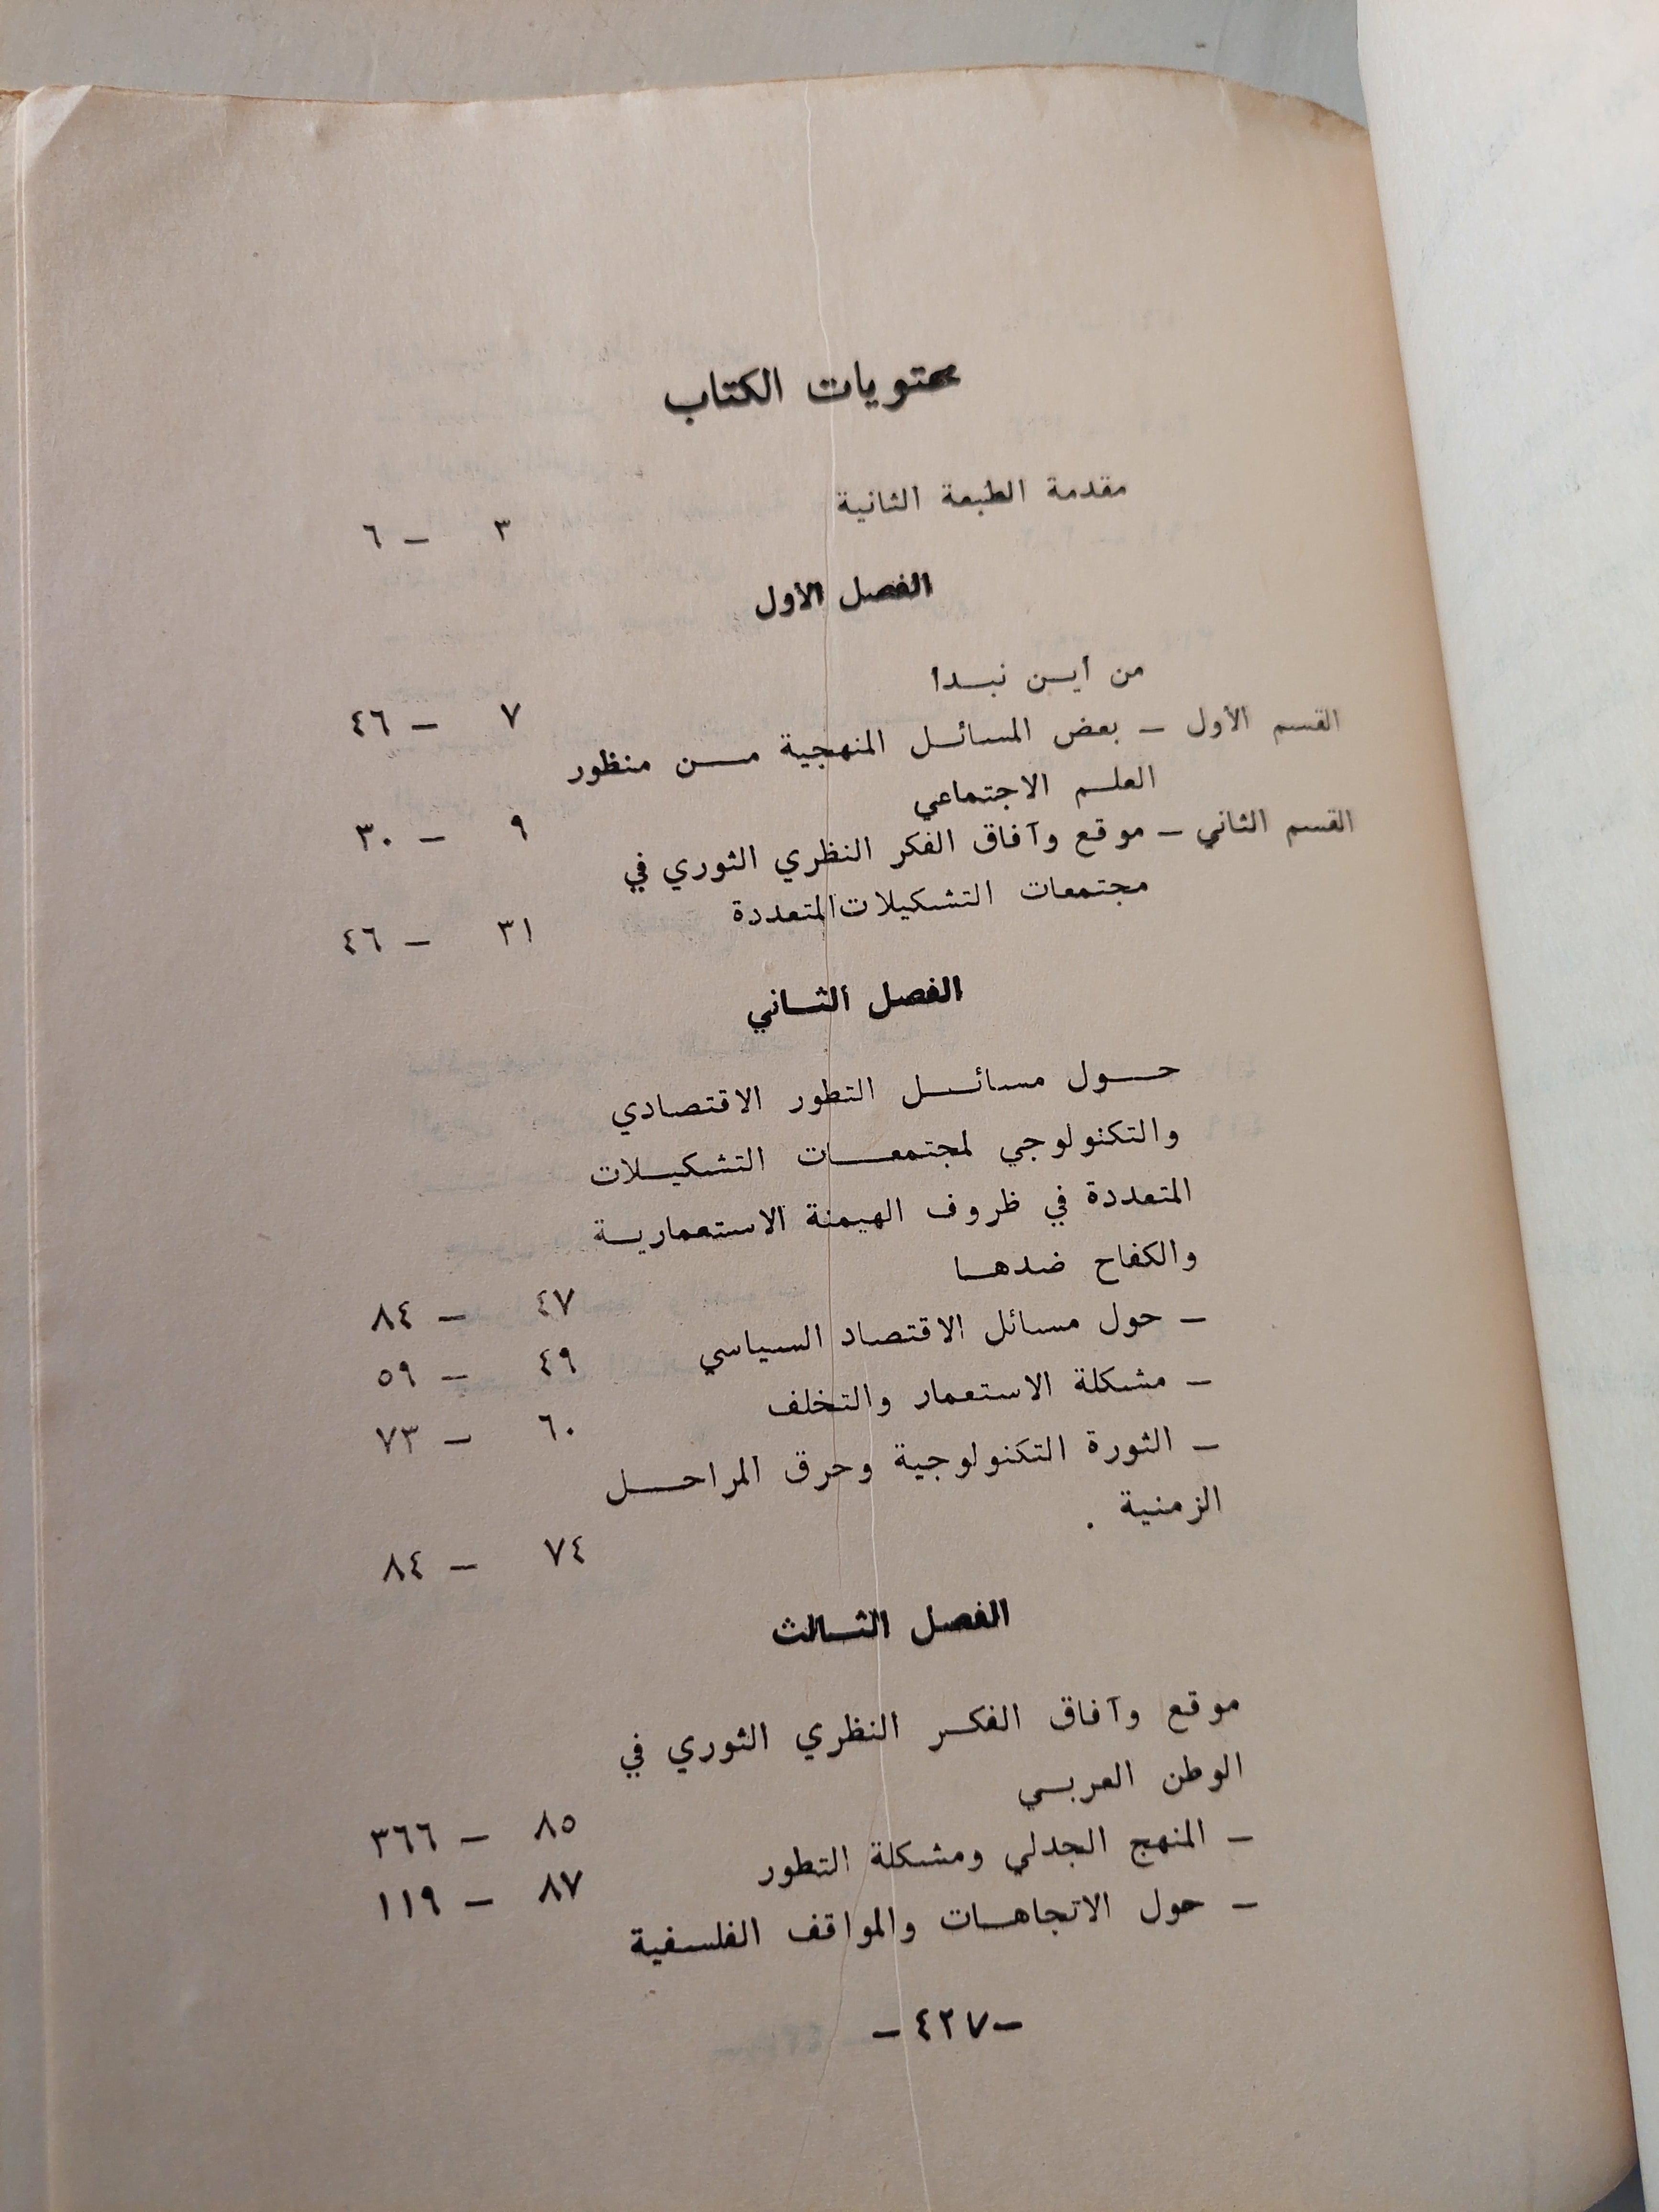 محتويات الكتاب
مقدمة الطبعة الثانية
٣ – ٦
الفصل الأول
من أيـن نبـدأ
٧ – ٤٦
القسم الأول – بعض المسائـل المنهجية مـن منظور
العلـم الاجتماعي
٩ – ٣٠
القسم الثاني – موقع وآفاق الفكر النظري الثوري في
مجتمعات التشكيلات المتعددة
٣١ – ٤٦
الفصل الثـاني
حـول مسائـل التطور الاقتصادي
والتكنولوجي لمجتمعـات التشكيـلات
المتعددة في ظروف الهيمنة الاستعماريـة
والكفاح ضدهـا
٤٧ – ٨٤
– حول مسائل الاقتصاد السياسي
٤٩ – ٥٩
– مشكلة الاستعمار والتخلف
٦٠ – ٧٣
– الثورة التكنولوجية وحرق المراحـل
الزمنية .
٧٤ – ٨٤
الفصل الثـالث
موقع وآفاق الفكـر النظري الثوري في
الوطن العربـي
٨٥ – ٣٦٦
– المنهج الجدلي ومشكلة التطور
٨٧ – ١١٩
– حول الاتجاهـات والمواقف الفلسفية
–٤٢٧–